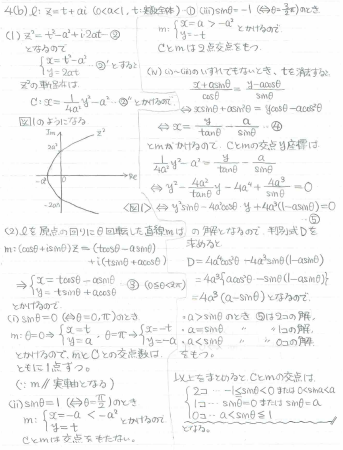 4(b) l: z=t+ai (0<a<1, t:実数全体)…①
(1) z²=t²-a²+i·2at…②
となるので
{x=t²-a²
y=2at …②' とすると
z²の軌跡は
C: x=1/4a² y²-a² …②'' とかけるので
図1のようになる
Im
z²
2a²
-a²
0
Re
-2a²
<図1>
(2) lを原点の回りにθ回転した直線mは
m: (cosθ+isinθ)z=(tcosθ-asinθ)
+i(tsinθ+acosθ)
⇒{x=tcosθ-asinθ
y=tsinθ+acosθ …③ (0≦θ<2π)
とかける。
(i) sinθ=0 (⇔θ=0,π)のとき
m: θ=0⇒{x=t
y=a, θ=π⇒{x=-t
y=-a
とかけるので、mとCとの交点数は
ともに1点ずつ。
(∵ m∥実軸となる)
(ii) sinθ=1 (⇔θ=π/2)のとき
m: {x=-a<-a²
y=t とかけるので
Cとmは交点をもたない。
(iii) sinθ=-1 (⇔θ=3/2π)のとき
m: {x=a>-a²
y=-t とかけるので
Cとmは2点交点をもつ。
(iv) (i)~(iii)のいずれでもないとき、tを消去すると
x+asinθ/cosθ = y-acosθ/sinθ
⇔xsinθ+asin²θ=ycosθ-acos²θ
⇔x=y/tanθ - a/sinθ …④
とmがかけるので、Cとmの交点y座標は
1/4a² y²-a²=y/tanθ - a/sinθ
⇔y²-4a²/tanθ y-4a⁴+4a³/sinθ=0
⇔y²sinθ-4a²cosθ·y+4a³(1-asinθ)=0
…⑤
の解となるので、判別式Dを
求めると
D=4a⁴cos²θ-4a³sinθ(1-asinθ)
=4a³{acos²θ-sinθ(1-asinθ)}
=4a³(a-sinθ)となるので
・a>sinθのとき ⑤は2コの解、
・a=sinθ 〃 1コの解、
・a<sinθ 〃 0コの解
をもつ。
以上をまとめるとCとmの交点は
{2コ…-1≦sinθ<0または0<sinθ<a
1コ…sinθ=0またはsinθ=a
0コ…a<sinθ≦1
となる。